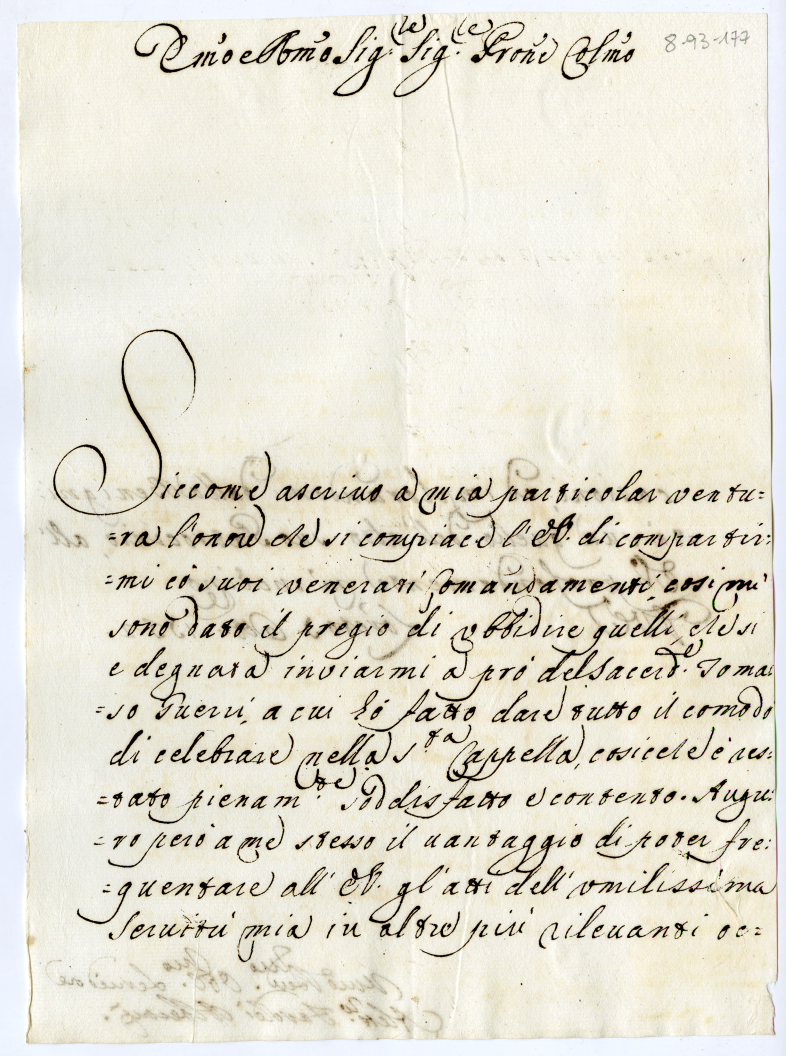 Emo e Rmo Sig:re Sig:re Prone Colmo
8-93-177
Siccome ascrivo a mia particolar ventu=
=ra l'onore che si compiace l'EV. di compartir=
=mi co' suoi venerati Comandamenti, cosi mi
sono dato il pregio di ubbidire quelli, che si
e degnata inviarmi a pró del Sacerd.e Toma
=so Guerri, a cui hó fatto dare tutto il comodo
di celebrare nella S.ta Cappella, cosicche è res=
=tato pienam:te soddisfatto e contento. Augu=
=ro peró a me stesso il vantaggio di poter fre=
=quentare all' EV. gl'atti dell' umilissima
servitú mia in altre piú rilevanti oc=